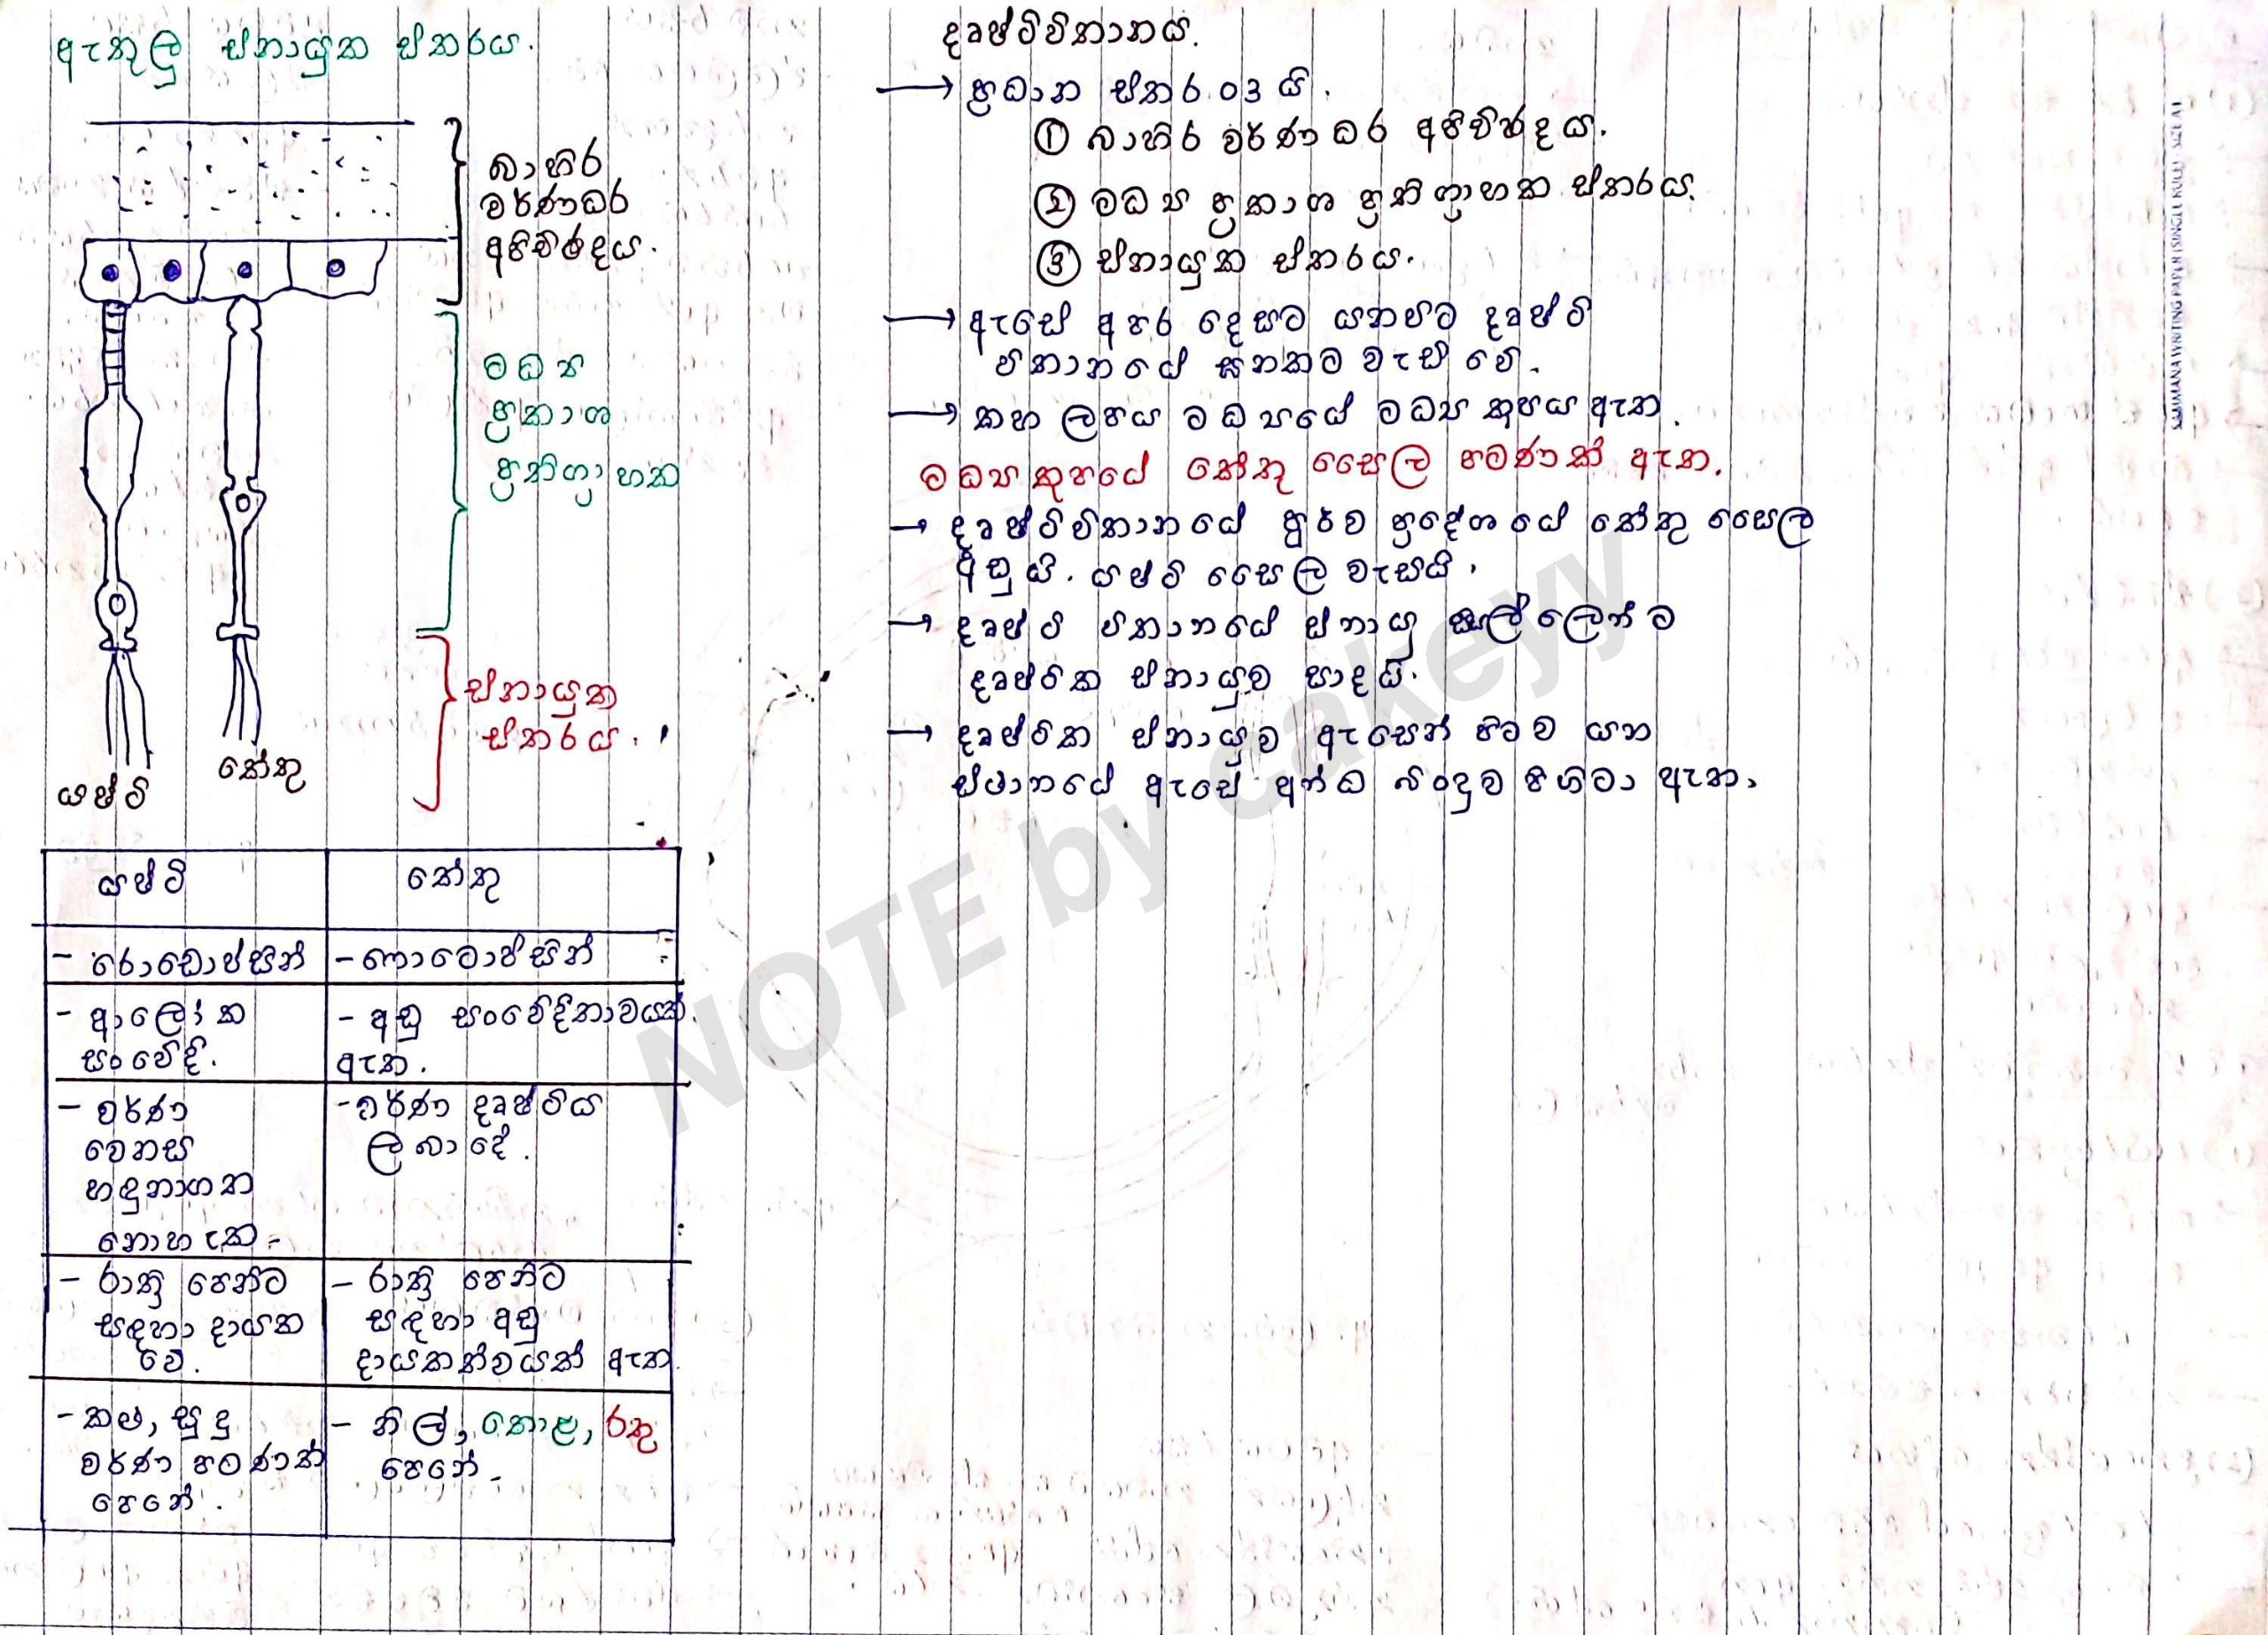 ඇතුලු ස්නායුක ස්තරය.
බාහිර
වර්ණධර
අපිච්ඡදය.
මධ්‍ය
ප්‍රකාශ
ප්‍රතිග්‍රාහක
ස්නායුක
ස්තරය.
යෂ්ටි
කේතු
යෂ්ටි
කේතු
- රොඩොප්සින්
- ෆොටොප්සින්
- ආලෝක
සංවේදී.
- අඩු සංවේදීතාවයක්
ඇත.
- වර්ණ
වෙනස
හඳුනාගත
නොහැක.
- වර්ණ දෘෂ්ටිය
ලබා දේ.
- රාත්‍රී පෙනීම
සඳහා දායක
වේ.
- රාත්‍රී පෙනීම
සඳහා අඩු
දායකත්වයක් ඇත.
- කළු, සුදු
වර්ණ පමණක්
පෙනේ.
- නිල්, කොළ, රතු
පෙනේ.
දෘෂ්ටිවිතානය.
→ ප්‍රධාන ස්තර 03 යි.
① බාහිර වර්ණධර අපිච්ඡදය.
② මධ්‍ය ප්‍රකාශ ප්‍රතිග්‍රාහක ස්තරය.
③ ස්නායුක ස්තරය.
→ ඇසේ අපර දෙසට යනවිට දෘෂ්ටි
විතානයේ ඝනකම වැඩි වේ.
→ කහ ලපය මධ්‍යයේ මධ්‍ය කූපය ඇත.
මධ්‍ය කූපයේ කේතු සෛල පමණක් ඇත.
→ දෘෂ්ටිවිතානයේ පූර්ව ප්‍රදේශයේ කේතු සෛල
අඩුයි. යෂ්ටි සෛල වැඩියි.
→ දෘෂ්ටි විතානයේ ස්නායු සෛලලෙන්ම
දෘෂ්ටික ස්නායුව සාදයි.
→ දෘෂ්ටික ස්නායුව ඇසෙන් පිටව යන
ස්ථානයේ ඇසේ අන්ධ බිංදුව පිහිටා ඇත.
NOTE by cakeyy